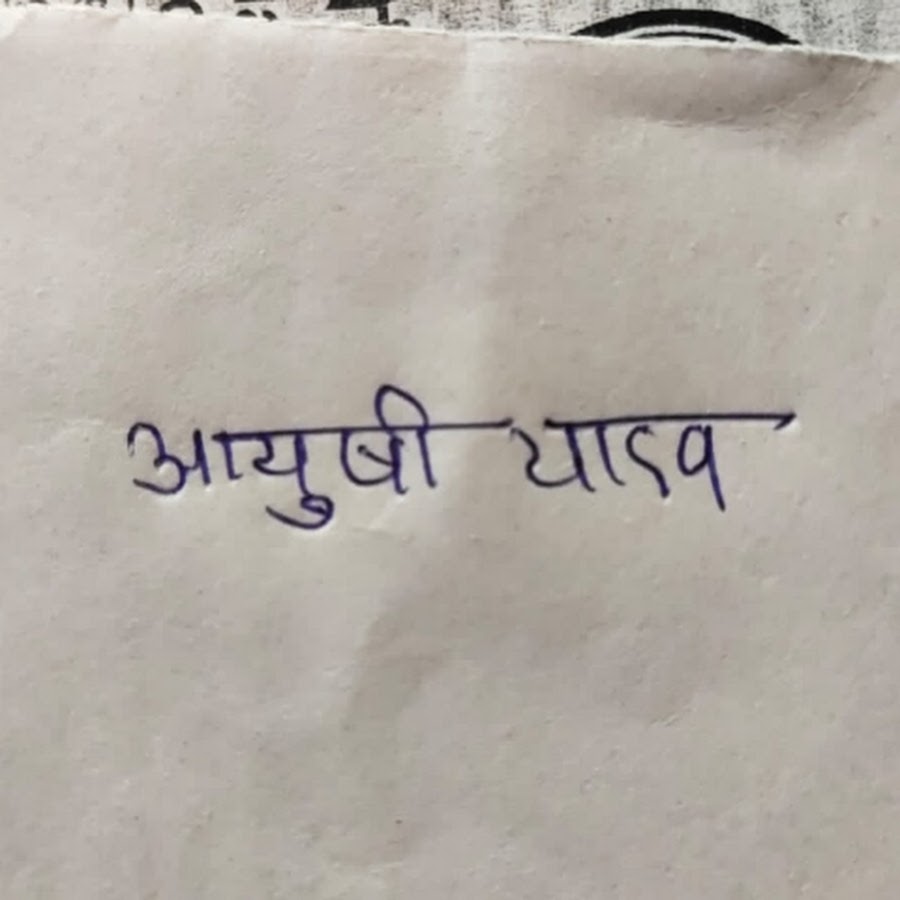 आयुषी यादव